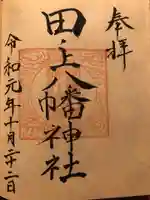 奉拝
田上八幡神社
令和元年十月二十二日